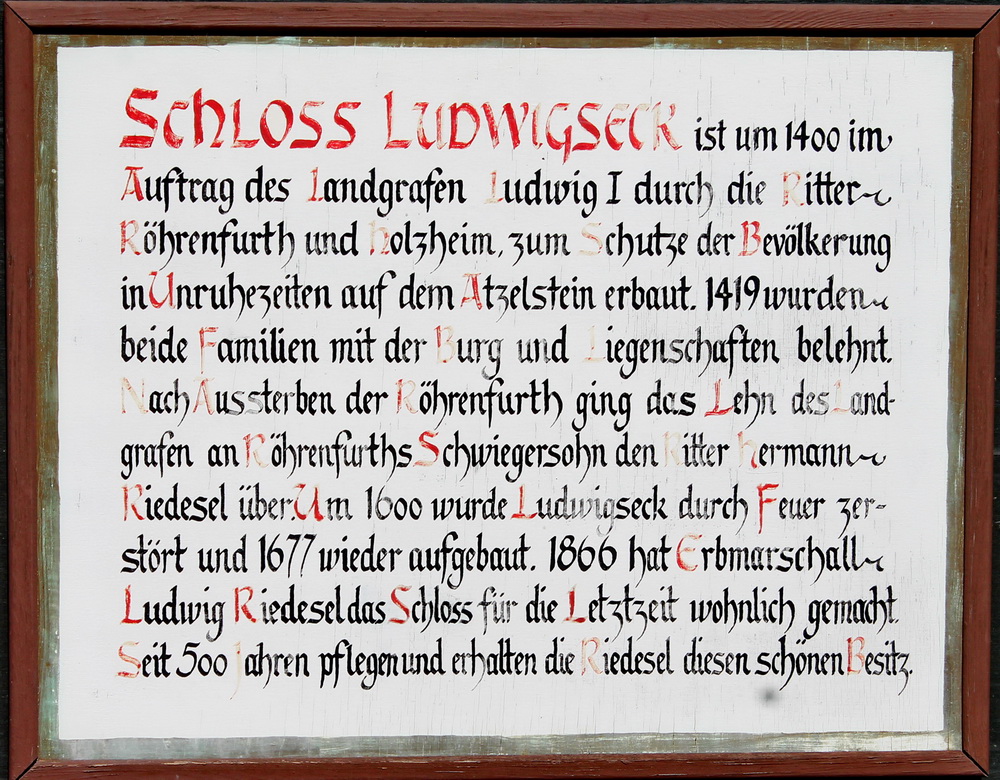 Schloss Ludwigseck ist um 1400 im
Auftrag des Landgrafen Ludwig I durch die Ritter
Röhrenfurth und Holzheim, zum Schutze der Bevölkerung
in Unruhezeiten auf dem Atzelstein erbaut. 1419 wurden
beide Familien mit der Burg und Liegenschaften belehnt.
Nach Aussterben der Röhrenfurth ging das Lehn des Land-
grafen an Röhrenfurths Schwiegersohn den Ritter Hermann
Riedesel über. Um 1600 wurde Ludwigseck durch Feuer zer-
stört und 1677 wieder aufgebaut. 1866 hat Erbmarschall
Ludwig Riedesel das Schloss für die Letztzeit wohnlich gemacht.
Seit 500 Jahren pflegen und erhalten die Riedesel diesen schönen Besitz.